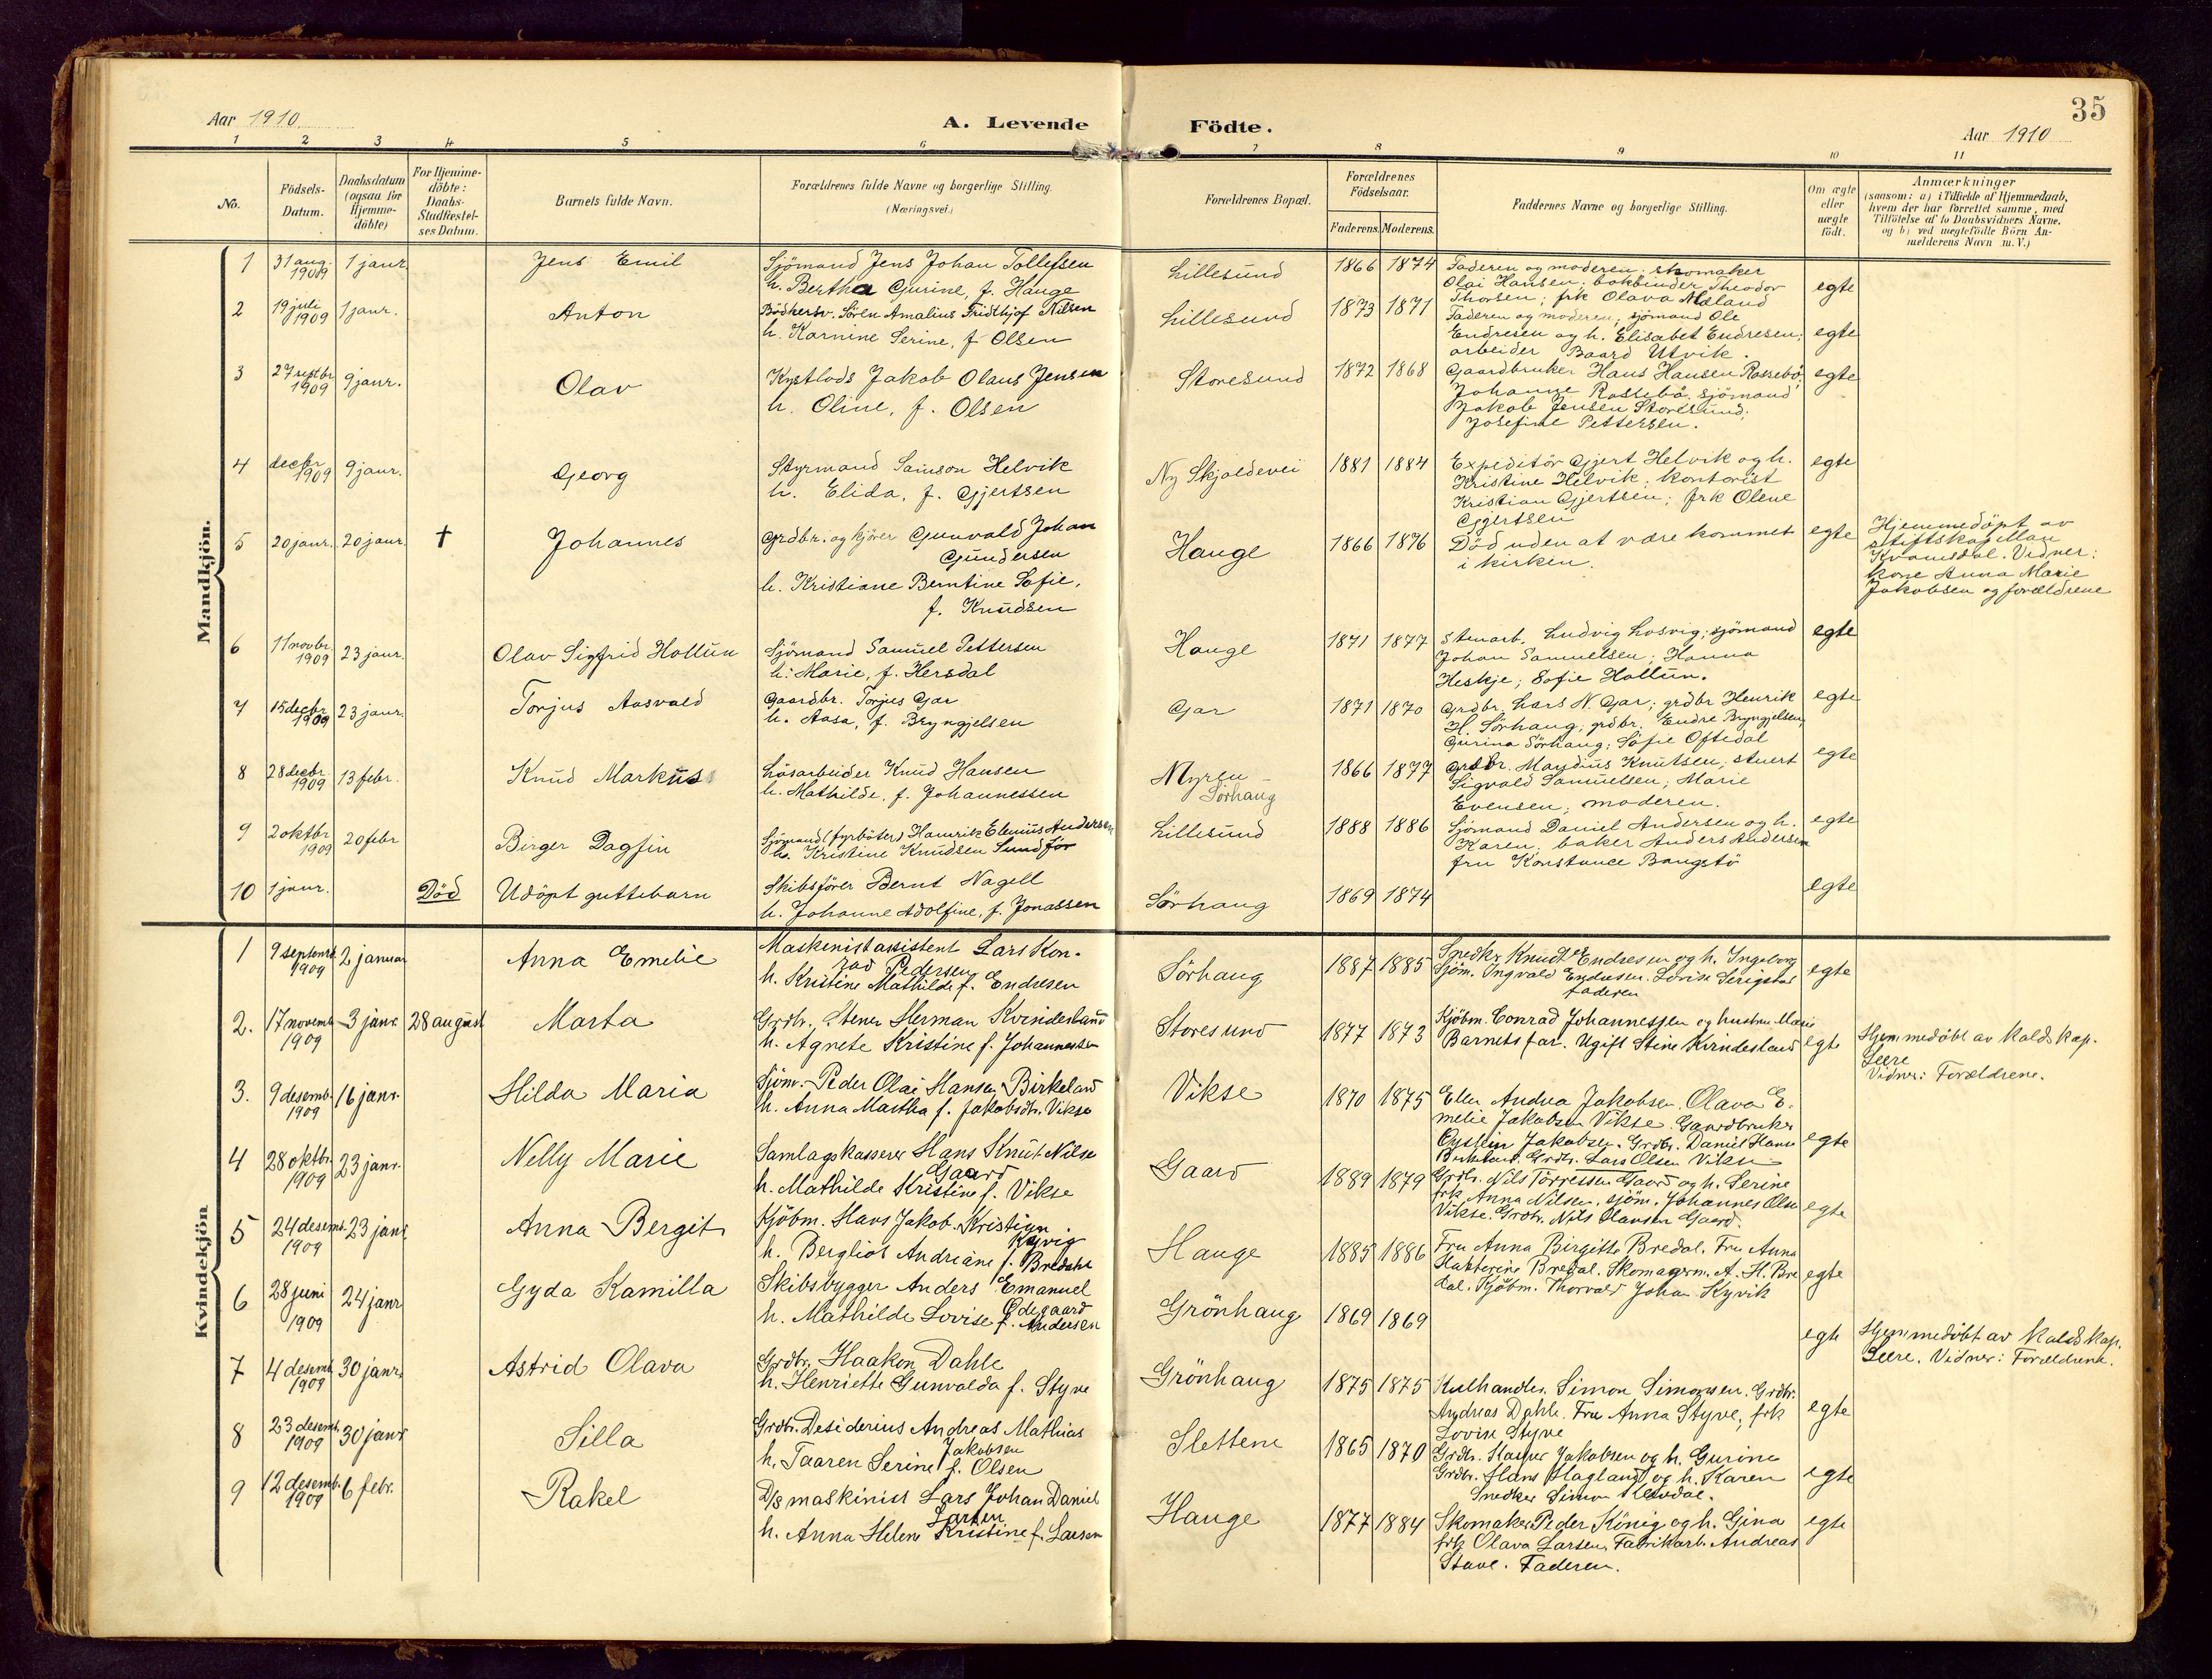 35
Aar 1910
A. Levende Födte.
Aar 1910
1 2 3 4 5 6 7 8 9 10 11
No.
Födsels-
Datum.
Daabsdatum
(ogsaa for
Hjemme-
döbte)
For Hjemme-
döbte:
Daabs-
Stadfæstel-
ses Datum.
Barnets fulde Navn.
Forældrenes fulde Navne og borgerlige Stilling.
(Næringsvei.)
Forældrenes Bopæl.
Forældrenes
Födselsaar.
Faderens. Moderens.
Faddernes Navne og borgerlige Stilling.
Om ægte
eller
uægte
födt.
Anmærkninger
(saasom: a) i Tilfælde af Hjemmedaab,
hvem der har forrettet samme, med
Tilföielse af to Daabsvidners Navne.
og b) ved uægtefödte Börn An-
melderens Navn m. V.)
Mandkjön.
1 31 aug. 1909 1 janr. Jens Emil
Sjömand Jens Johan Tollefsen
h. Bertha Gurine, f. Hauge
Lillesund 1866 1874
Faderen og moderen; skomaker
Olai Hansen; bokbinder Theodor
Thorsen; frk Olava Mæland
egte
2 19 juli 1909 1 janr. Anton
Bödkersv. Sören Amalius Fridthjof Nilsen
h. Karnine Serine, f. Olsen
Lillesund 1873 1871
Faderen og moderen; sjömand Ole
Endresen og h. Elisabet Endresen;
arbeider Baard Utvik.
egte
3 27 septbr 1909 9 janr. Olav
Kystlods Jakob Olaus Jensen
h. Oline, f. Olsen
Storesund 1872 1868
Gaardbruker Hans Hansen Rossebö;
Johanne Rossebö; sjömand
Jakob Jensen Storesund;
Josefine Pettersen.
egte
4 decbr 1909 9 janr. Georg
Styrmand Samson Helvik
h. Elida, f. Gjertsen
Ny Skjoldevei 1881 1884
Expeditör Gjert Helvik og h.
Kristine Helvik; kontorist
Kristian Gjertsen; frk Olene
Gjertsen
egte
5 20 janr. 20 janr. † Johannes
Grdbr. og kjörer Gunvald Johan
Gundersen
h. Kristiane Berntine Sofie,
f. Knudsen
Hauge 1866 1876
Död uden at være kommet
i kirken.
egte
Hjemmedöpt av
stiftskapellan
Kvamsdal. Vidner:
kone Anna Marie
Jakobsen og forældrene
6 11 novbr. 1909 23 janr. Olav Sigfrid Hollun
Sjömand Samuel Pettersen
h. Marie, f. Hersdal
Hauge 1871 1877
Stenarb. Ludvig Losvig; sjömand
Johan Samuelsen; Hanna
Heskje; Sofie Hollun.
egte
7 15 decbr 1909 23 janr. Torjus Aasvald
Gaardbr. Torjus Gar
h. Aasa, f. Bryngjelsen
Gar 1871 1870
Grdbr. Lars N. Gar; grdbr Henrik
H. Sörhaug; grdbr. Endre Bryngjelsen,
Gurina Sörhaug; Sofie Oftedal
egte
8 28 decbr. 1909 13 febr. Knud Markus
Lösarbeider Knud Hansen
h. Mathilde, f. Johannessen
Myren -
Sörhaug
1866 1877
Grdbr. Mandius Knutsen; stuert
Sigvald Samuelsen; Marie
Evensen; moderen.
egte
9 2 oktbr 1909 20 febr Birger Dagfin
Sjömand (fyrböter) Hanrik Elenius Andersen
h. Kristine Knudsen Sundför
Lillesund 1888 1886
Sjömand Daniel Andersen og h.
Karen; baker Anders Andersen
fru Konstance Bangstö
egte
10 1 janr. Död Udöpt guttebarn
Skibsförer Bernt Nagell
h. Johanne Adolfine, f. Jonassen
Sörhaug 1869 1874
egte
Kvindekjön
1 9 septembr 1909 2 januar Anna Emelie
Maskinistassistent Lars Kon-
rad Pedersen
h. Kristine Mathilde f. Endresen
Sörhaug 1887 1885
Snedkr Knudt Endresen og h. Ingeborg
Sjöm. Ingvald Endresen. Lovise
faderen
egte
2. 17 novemb 1909 3 janr. 28 august Marta
Grdbr. Stener Herman Kvindesland
h. Agnete Kristine f. Johannesen
Storesund 1877 1873
Kjöbm. Conrad Johannessen og hustru Marie
Barnets far. Ugift Stine Kvindesland
egte
Hjemmedöbt av kaldskap.
Seere
Vidner: Forældrene.
3. 9 desemb. 1909 16 janr. Hilda Maria
Sjöm. Peder Olai Hansen Birkeland
h. Anna Martha f. Jakobsdtr. Vikse
Vikse 1870 1875
Ellen Andrea Jakobsen. Olava E-
melie Jakobsen Vikse. Gaardbruker
Oystein Jakobsen. Grdbr. Daniel Hansen
Birkeland. Grdbr. Lars Olsen Vikse
egte
4 28 oktbr. 1909 23 janr. Nelly Marie
Samlagskasserer Hans Knut Nilsen
Gaard
h. Mathilde Kristine f. Vikse
Gaard 1889 1879
Grdbr. Nils Törressen Gaard og h. Serine
frk Anna Nilsen. sjöm. Johannes Olsen
Vikse. Grdbr. Nils Olausen Gaard.
egte
5 24 desemb. 1909 23 janr Anna Bergit
Kjöbm. Hans Jakob Kristian
Kyvig
h. Bergliot Andriane f. Bredahl
Hauge 1885 1886
Fru Anna Birgitte Bredal. Fru Anna
Katterine Bredal. Skomagerm. A. H. Bre
dal. Kjöbm. Thorvald Johan Kyvik
egte
6 28 juni 1909 24 janr Gyda Kamilla
Skibsbygger Anders Emanuel
Ödegaard
h. Mathilde Lovise f. Andersen
Grönhaug 1869 1869
egte
Hjemmedöbt av kaldskap.
Seere. Vidner: Forældrene.
7 4 desemb 1909 30 janr. Astrid Olava
Grdbr. Haakon Dahle
h. Henriette Gunvalda f. Styve
Grönhaug 1875 1875
Kulhandler Simon Simonsen. Grdbr.
Andreas Dahle. Fru Anna Styve, frk
Lovise Styve
egte
8 23 desemb. 1909 30 janr Silla
Grdbr. Desiderius Andreas Mathias
Jakobsen
h. Taaren Serine f. Olsen
Slettene 1865 1870
Grdbr. Kasper Jakobsen og h. Gurine
Grdbr. Hans Hagland og h. Karen
Snedker Simon
egte
9 12 desemb. 1909 6 febr. Rakel
D/s maskinist Lars Johan Daniel
Larsen
h. Anna Helene Kristine f. Larsen
Hauge 1877 1884
Skomaker Peder König og h. Gina
frk Olava Larsen, Fabrikarb. Andreas
Stave. Faderen.
egte